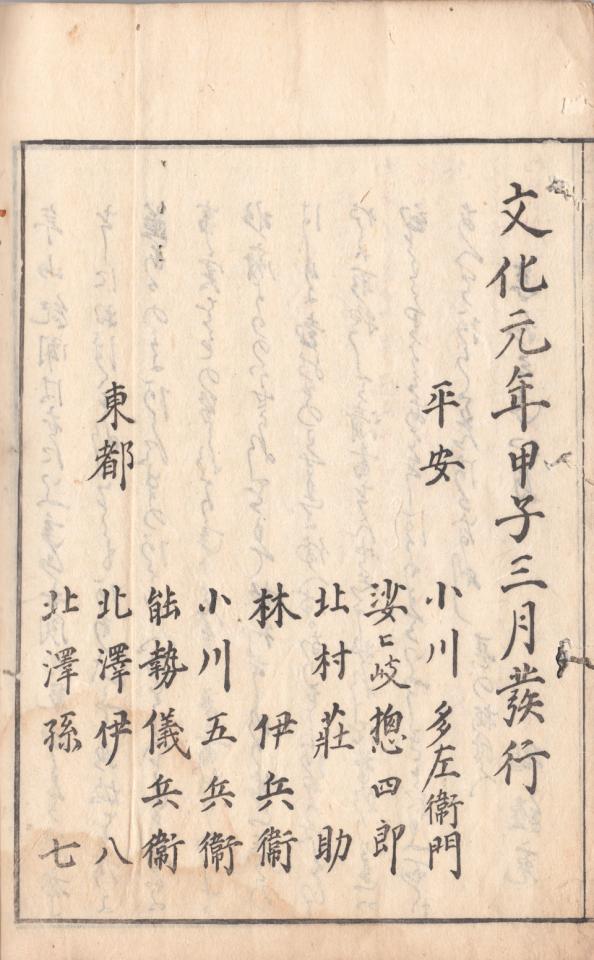 文化元年甲子三月發行
平安 小川多左衛門
娑〻岐摠四郎
北村莊助
林伊兵衛
小川五兵衛
能勢儀兵衛
東都 北澤伊八
北澤孫七